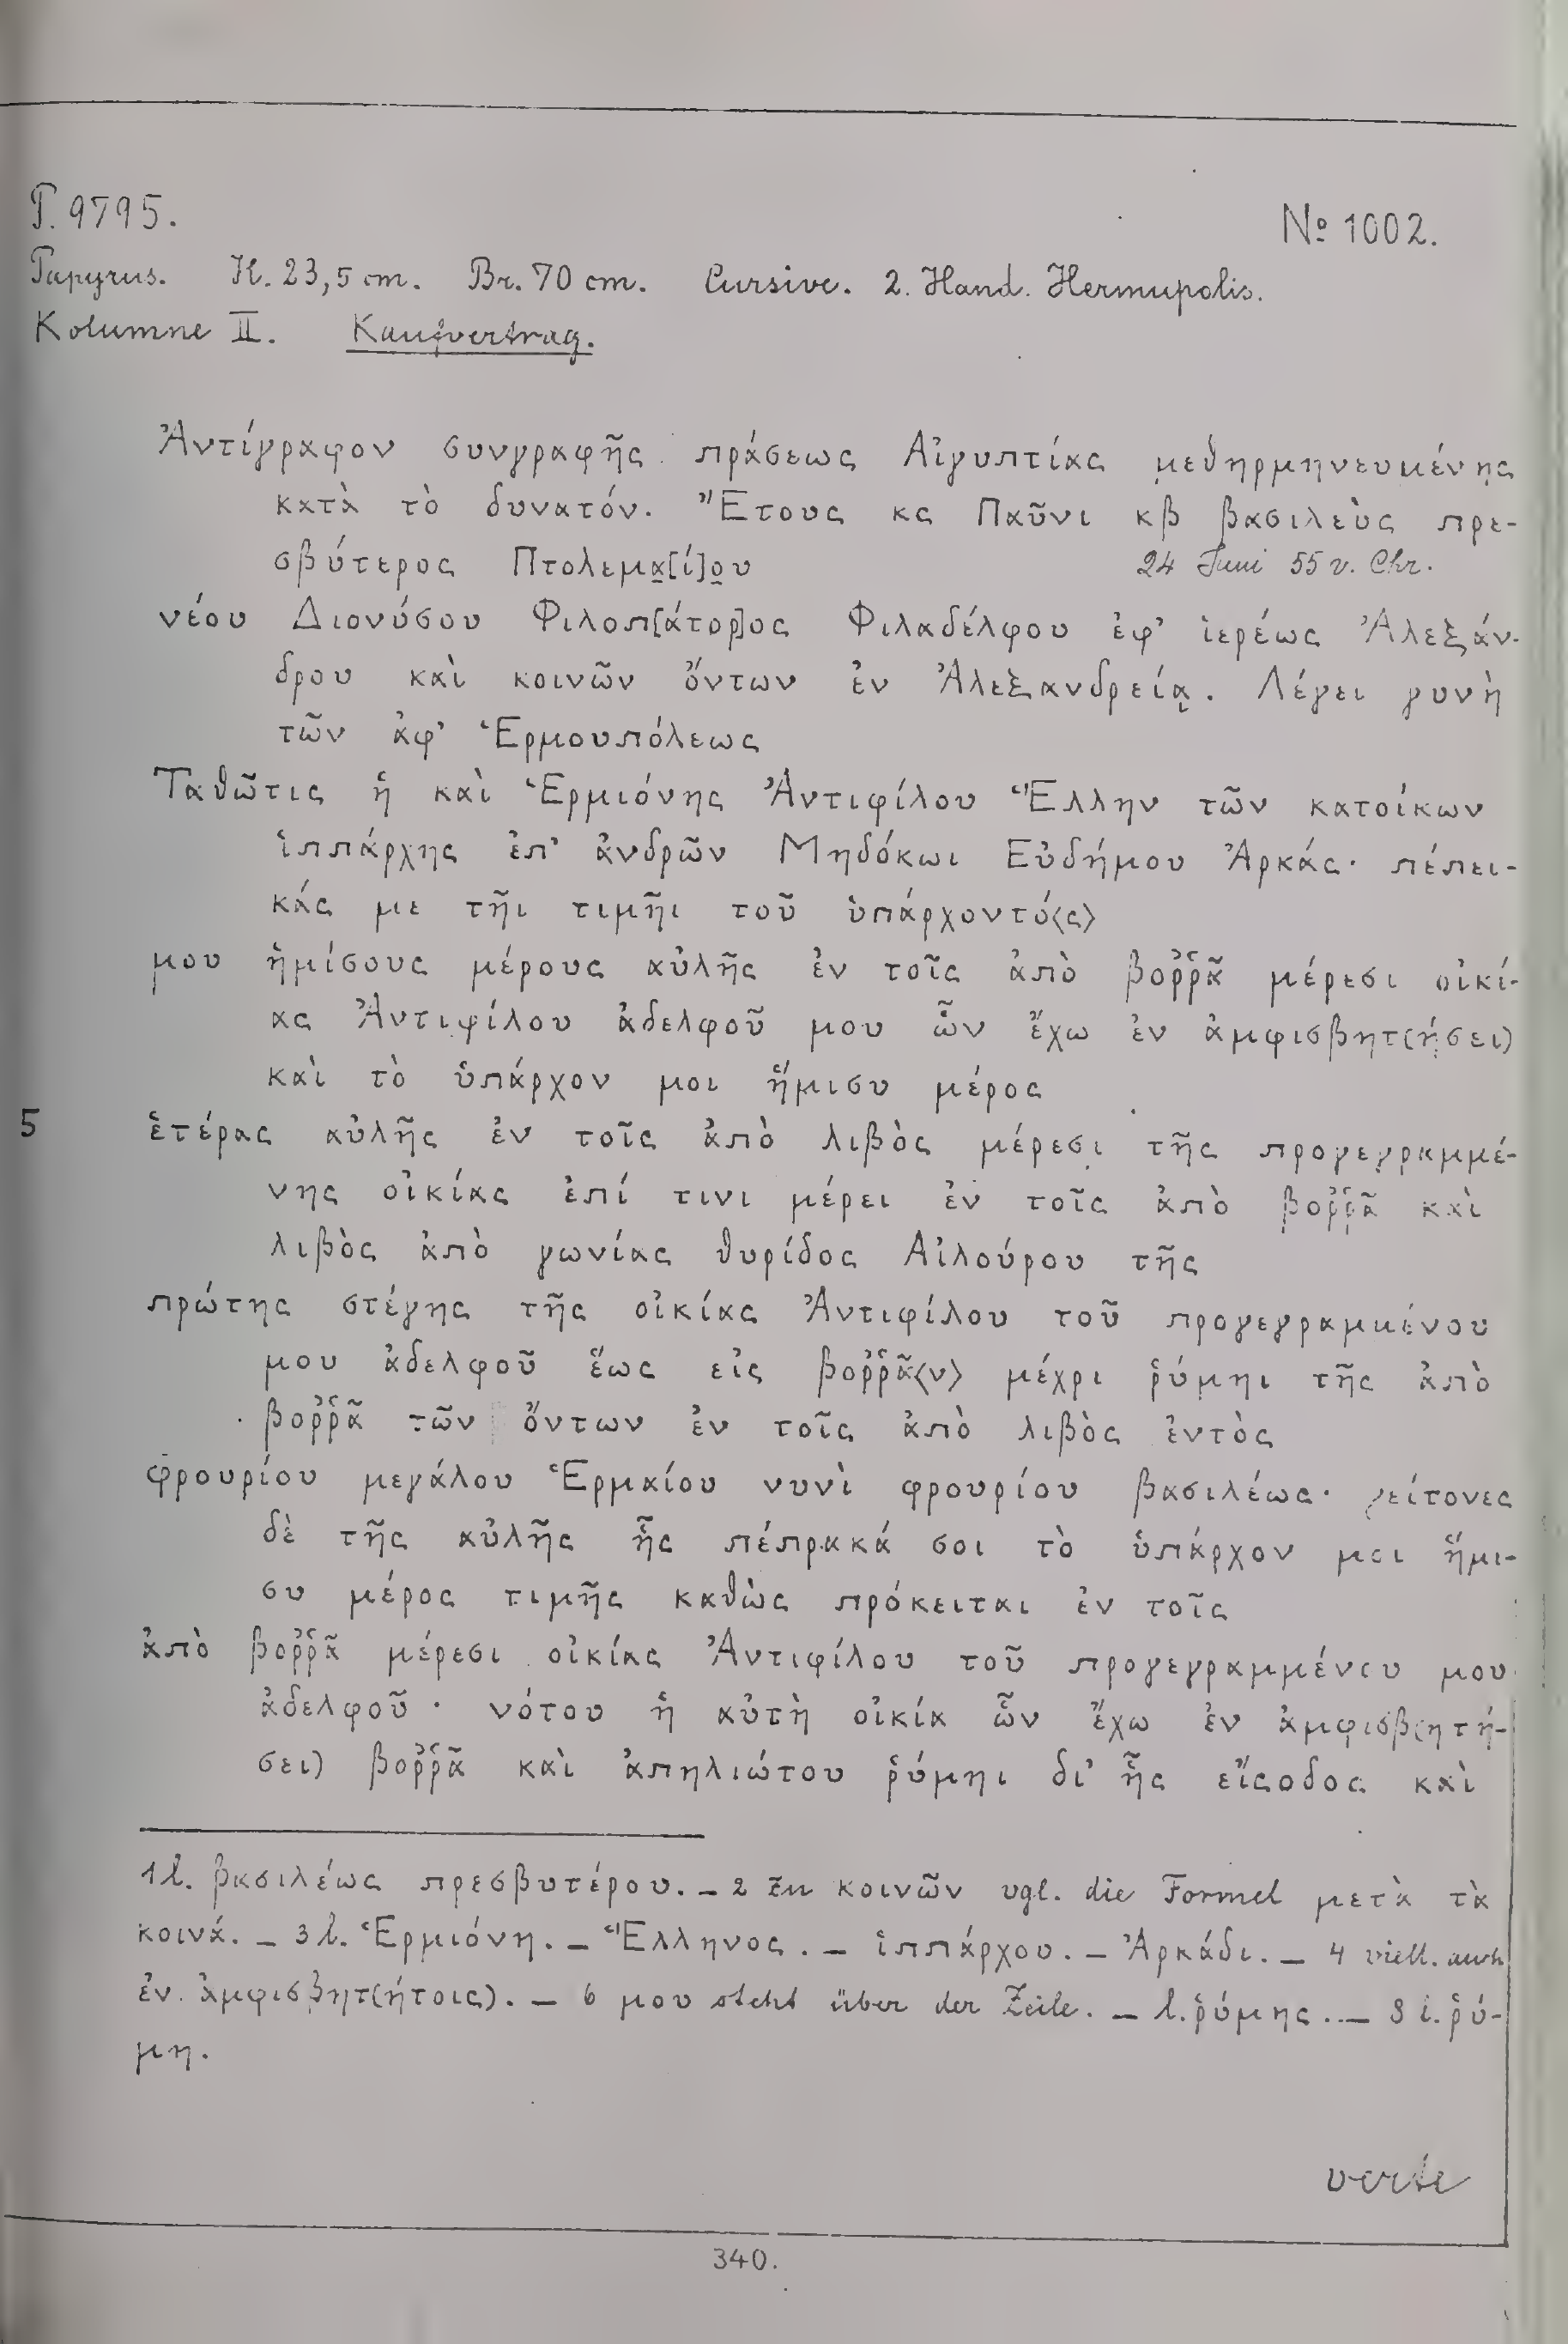 P. 9795.
№ 1002.
Papyrus. H. 23,5 cm. Br. 70 cm. Cursive. 2. Hand. Hermupolis.
Kolumne II. Kaufvertrag.
Ἀντίγραφον συνγραφῆς πράσεως Αἰγυπτίας μεθηρμηνευμένης
κατὰ τὸ δυνατόν. Ἔτους κς Παῦνι κβ βασιλεὺς πρε-
σβύτερος Πτολεμα̣[ί]ο̣υ 24 Juni 55 v. Chr.
νέου Διονύσου Φιλοπ[άτορ]ος Φιλαδέλφου ἐφ' ἱερέως Ἀλεξάν-
δρου καὶ κοινῶν ὄντων ἐν Ἀλεξανδρείᾳ. Λέγει γυνὴ
τῶν ἀφ' Ἑρμουπόλεως
Ταθῶτις ἡ καὶ Ἑρμιόνης Ἀντιφίλου Ἕλλην τῶν κατοίκων
ἱππάρχης ἐπ' ἀνδρῶν Μηδόκωι Εὐδήμου Ἀρκάς· πέπει-
κάς με τῆι τιμῆι τοῦ ὑπάρχοντό⟨ς⟩
μου ἡμίσους μέρους αὐλῆς ἐν τοῖς ἀπὸ βοῤῥᾶ μέρεσι οἰκί-
ας Ἀντιφίλου ἀδελφοῦ μου ὧν ἔχω ἐν ἀμφισβητ(ήσει)
καὶ τὸ ὑπάρχον μοι ἥμισυ μέρος
5 ἑτέρας αὐλῆς ἐν τοῖς ἀπὸ λιβὸς μέρεσι τῆς προγεγραμμέ-
νης οἰκίας ἐπί τινι μέρει ἐν τοῖς ἀπὸ βοῤῥᾶ καὶ
λιβὸς ἀπὸ γωνίας θυρίδος Αἰλούρου τῆς
πρώτης στέγης τῆς οἰκίας Ἀντιφίλου τοῦ προγεγραμμένου
μου ἀδελφοῦ ἕως εἰς βοῤῥᾶ⟨ν⟩ μέχρι ῥύμηι τῆς ἀπὸ
βοῤῥᾶ τῶν ὄντων ἐν τοῖς ἀπὸ λιβὸς ἐντὸς
φρουρίου μεγάλου Ἑρμαίου νυνὶ φρουρίου βασιλέως· γείτονες
δὲ τῆς αὐλῆς ἧς πέπρακά σοι τὸ ὑπάρχον μοι ἥμι-
συ μέρος τιμῆς καθὼς πρόκειται ἐν τοῖς
ἀπὸ βοῤῥᾶ μέρεσι οἰκίας Ἀντιφίλου τοῦ προγεγραμμένου μου
ἀδελφοῦ· νότου ἡ αὐτὴ οἰκία ὧν ἔχω ἐν ἀμφισβ(ητή-
σει) βοῤῥᾶ καὶ ἀπηλιώτου ῥύμηι δι' ἧς εἴςοδος καὶ
1 l. βασιλέως πρεσβυτέρου. – 2 Zu κοινῶν vgl. die Formel μετὰ τὰ
κοινά. – 3 l. Ἑρμιόνη. – Ἕλληνος. – ἱππάρχου. – Ἀρκάδι. – 4 viell. auch
ἐν ἀμφισβητ(ήτοις). – 6 μου steht über der Zeile. – l. ῥύμης. – 8 l. ῥύ-
μη.
verte
340.